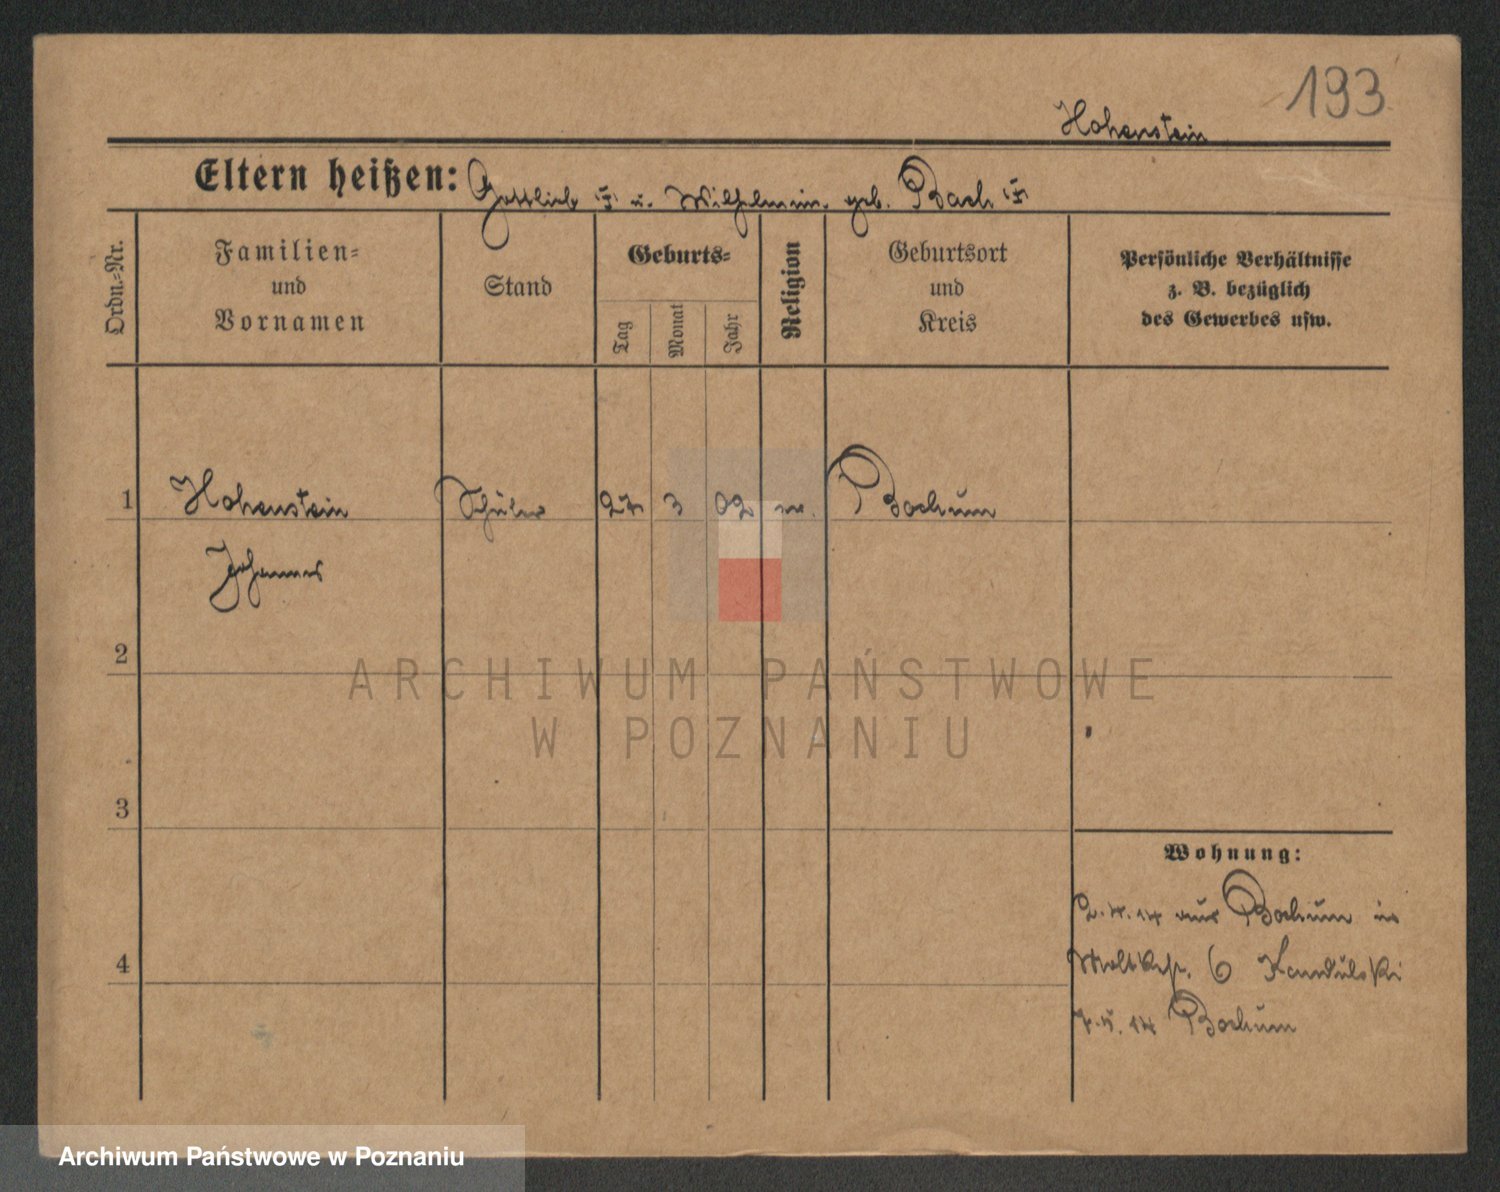 193
Hohenstein
Eltern heißen: Gottlieb u. Wilhelmin. geb. Bach
Ordn.-Nr.
Familien-
und
Vornamen
Stand
Geburts-
Tag
Monat
Jahr
Religion
Geburtsort
und
Kreis
Persönliche Verhältnisse
z. B. bezüglich
des Gewerbes usw.
1 Hohenstein Schüler 27 3 02 Bochum
Johannes
2
ARCHIWUM PAŃSTWOWE
W POZNANIU
3
Wohnung:
2.4.14 aus Bochum in
Moltkestr. 6 Kandulski
4
7.5.14 Bochum
Archiwum Państwowe w Poznaniu